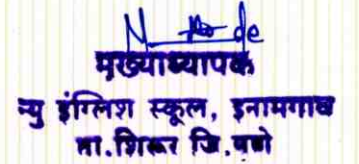 मुख्याध्यापक
न्यु इंग्लिश स्कूल, इनामगाव
ता.शिरूर जि.पुणे